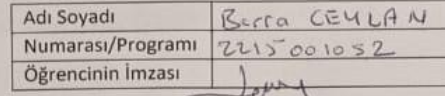 Adı Soyadı Berra CEYLAN
Numarası/Programı 2215001052
Öğrencinin İmzası